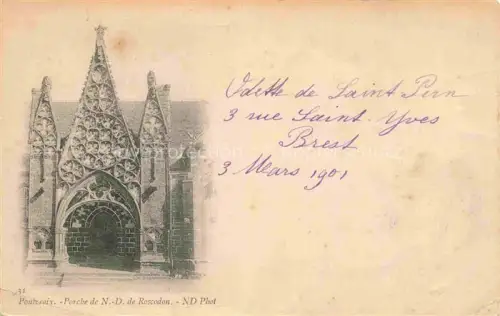 Odette de Saint Pern
3 rue Saint-Yves
Brest
3 Mars 1901
Pontcroix. - Porche de N.-D. de Roscudon. - ND Phot